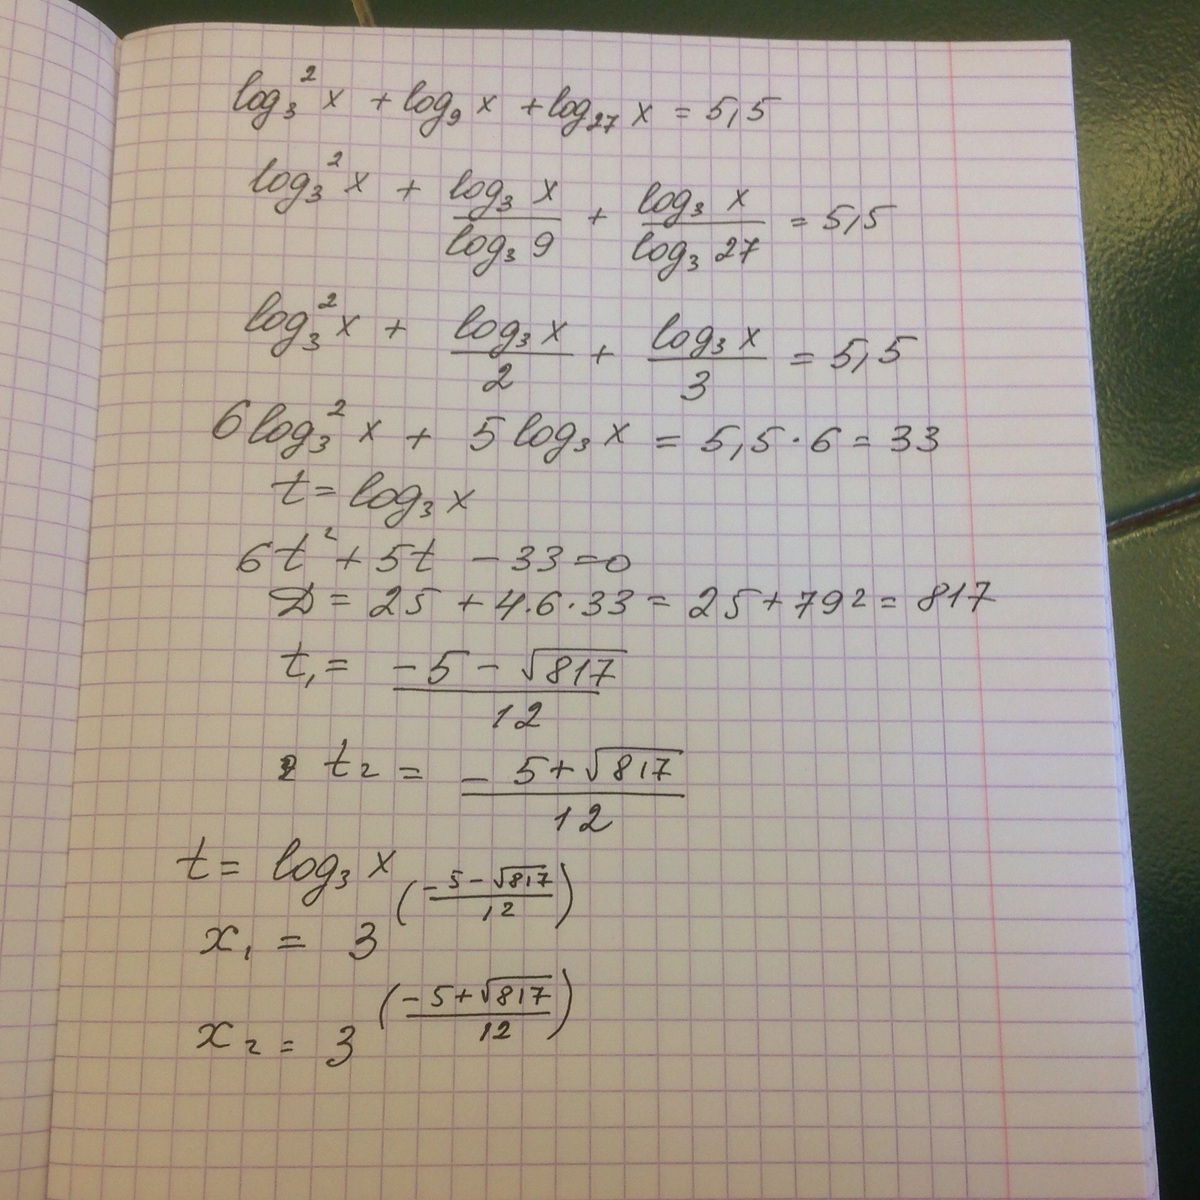 log₃² x + log₉ x + log₂₇ x = 5,5
log₃² x + log₃ x / log₃ 9 + log₃ x / log₃ 27 = 5,5
log₃² x + log₃ x / 2 + log₃ x / 3 = 5,5
6 log₃² x + 5 log₃ x = 5,5 · 6 = 33
t = log₃ x
6t² + 5t - 33 = 0
D = 25 + 4·6·33 = 25 + 792 = 817
t₁ = (-5 - √817) / 12
t₂ = (-5 + √817) / 12
t = log₃ x
x₁ = 3^((-5 - √817) / 12)
x₂ = 3^((-5 + √817) / 12)